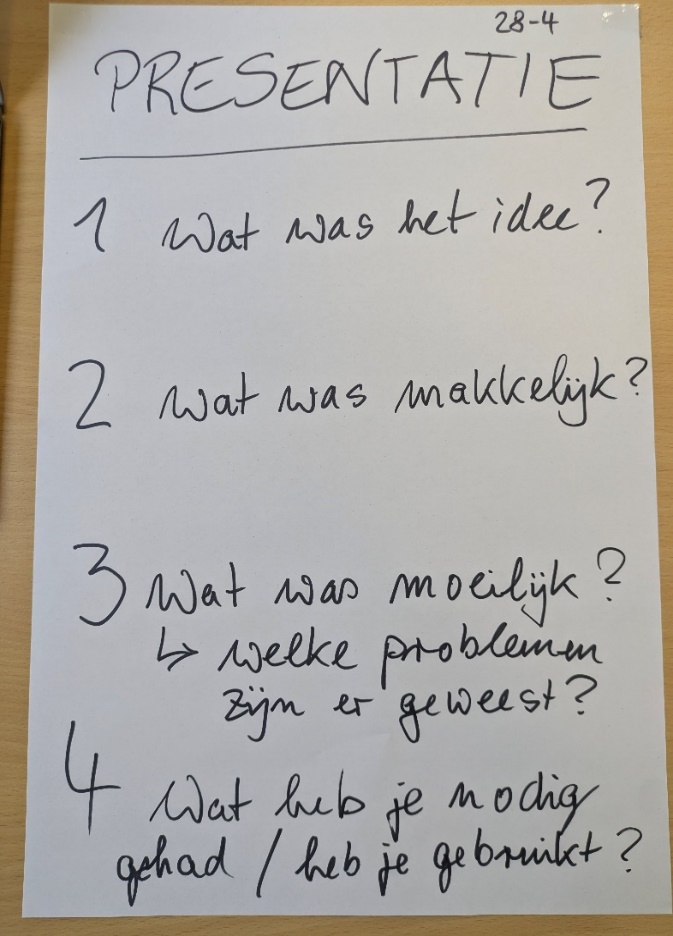 28-4
PRESENTATIE
1 Wat was het idee?
2 Wat was makkelijk?
3 Wat was moeilijk?
↳ welke problemen
zijn er geweest?
4 Wat heb je nodig
gehad / heb je gebruikt?